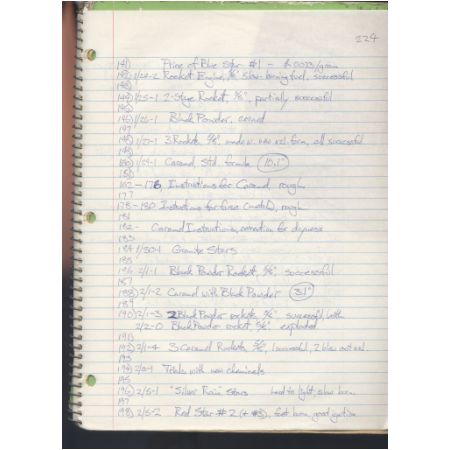 224
141) Price of Blue Star #1 - $.0013/gram
142) 1/24-2 Rocket Engine, 5/8" slow-burning fuel, successful
143)
144) 1/25-1 2-Stage Rocket, 5/8", partially successful
145
146) 1/26-1 Black Powder, corned
147
148) 1/27-1 3 Rockets, 5/8", made w. new form, all successful
149
150) 1/29-1 Caramel, Std. formula 10.1"
151
152 - 176, Instructions for Caramel, rough
177
178 - 180 Instructions for fuse, rough
181
182 - Caramel Instructions, correction for
183
184 1/30-1 Granite Stars
185
186 2/1-1 Black Powder Rocket, 5/8", successful
187
188) 2/1-2 Caramel with Black Powder 3.1"
189
190) 2/1-3 2 Black Powder rockets, 5/8" successful, with
2/2-0 Black Powder rocket, 5/8", exploded
191
192) 2/1-4 3 Caramel Rockets, 5/8", 1 successful, 2 blew out
193
194) Trials with new chemicals
195
196) 2/5-1 "Silver Rain" Stars hard to light, slow burn
197
198) 2/5-2 Red Star #2 (+ #3), fast burn, good ignition